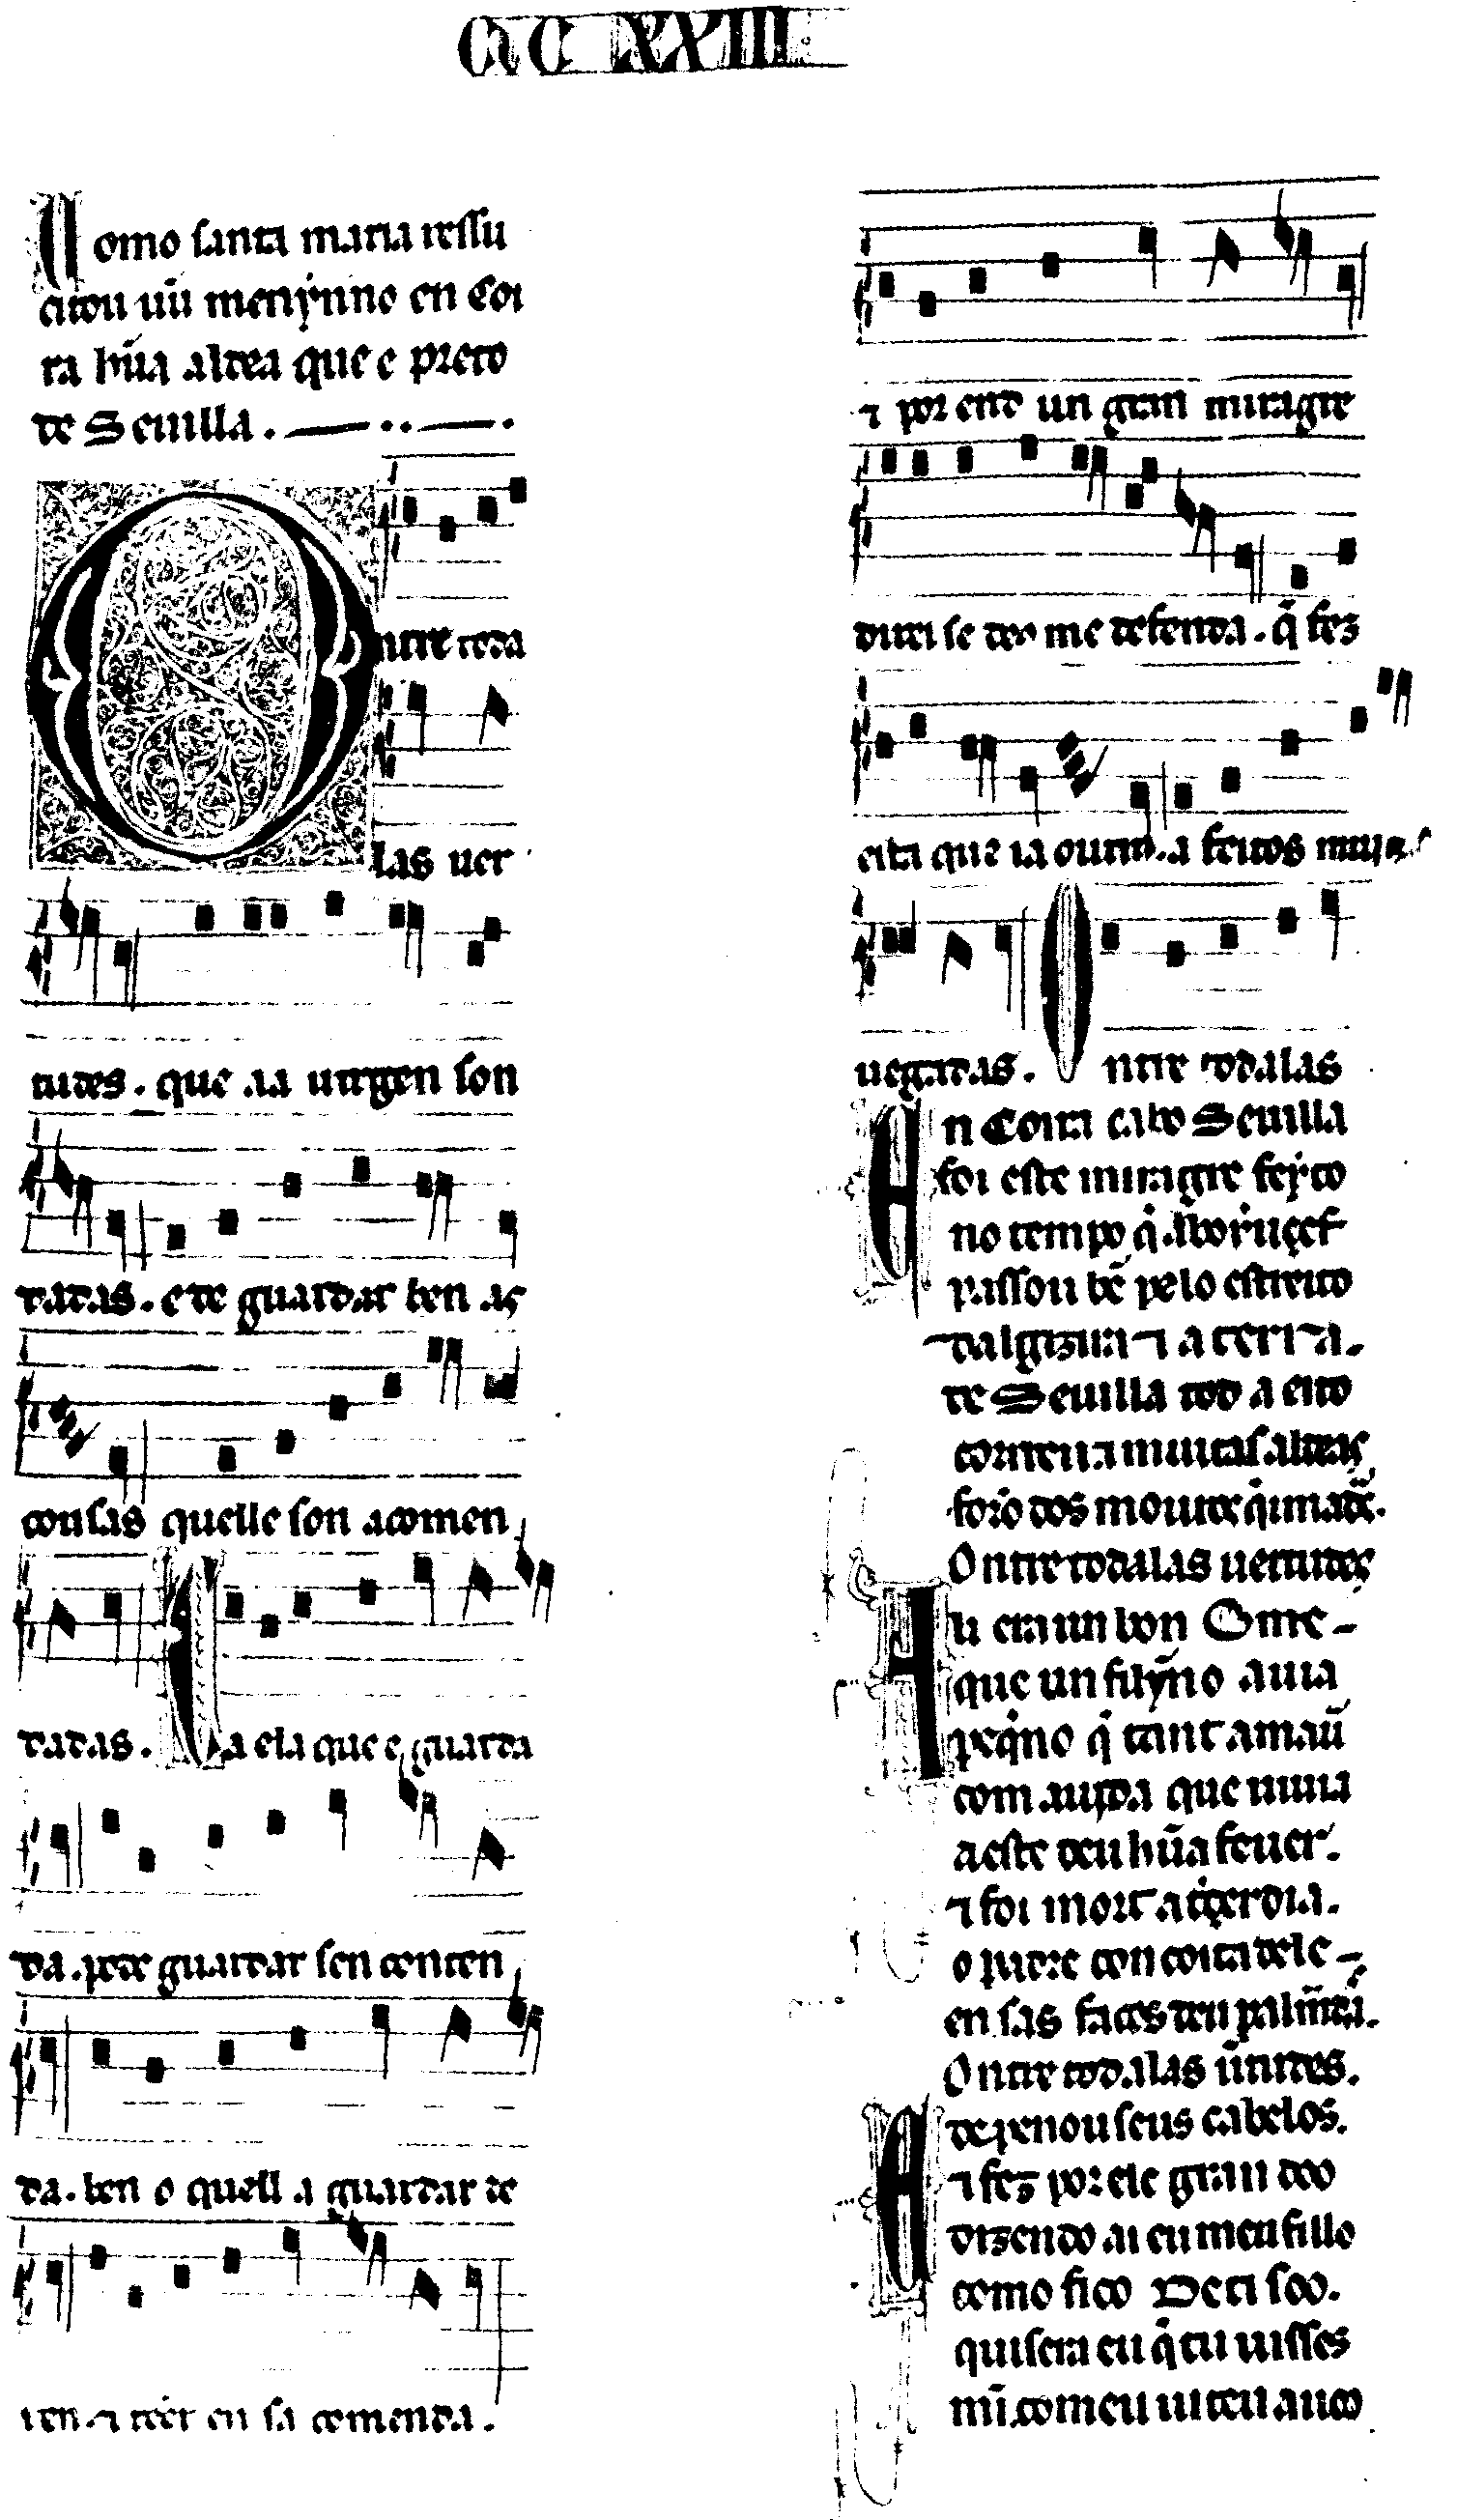 CCCXXIII
Como santa maria ressu
citou un menỹno en Coi
ra hũa aldea que e preto
de Seuilla.
Ontre toda
las uer
tudes. que aa uirgen son
dadas. e de guardar ben as
cousas quelle son acomen
dadas. Ca ela que e guarda
da. pode guardar sen conten
da. ben o quell a guardar de
ren. ⁊ tẽer en sa comenda.
⁊ por end un gran miragre
direi se deo me defenda. q̇ fez
esta que ia outros a feitos muitas
uegadas. Ontre todalas
En Coira cabo Seuilla
foi este miragre feỹto
no tempo q̇ Aboỹuçef
passou bẽ pelo estreito
dalgizira ⁊ a terra.
de Seuilla tod a eito
correu ⁊ muitas aldeas
forõ dos mouros q̇imadas.
Ontre todalas uertudes
Ali era un bon Ome
que un fillỹno auia
peq̇no q̇ tant amaua
com a uida que uiuia
a este deu hũa feuer.
⁊ foi mort a t̃çer dia.
o padre con coita dele
en sas faces deu palmadas.
Ontre todalas ũtudes.
E depenou seus cabelos.
⁊ fez por ele gran doo
dizendo ai eu meu fillo
como fico De ti soo.
quisera eu q̇ tu uisses
mĩ. com eu ui teu auoo